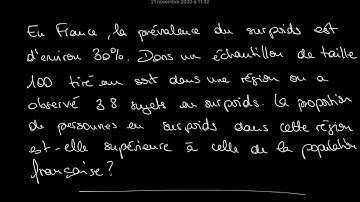 21 novembre 2020 à 11:32
En France, la prévalence du surpoids est
d'environ 30%. Dans un échantillon de taille
100 tiré au sort dans une région on a
observé 38 sujets en surpoids. La proportion
de personnes en surpoids dans cette région
est-elle supérieure à celle de la population
française?